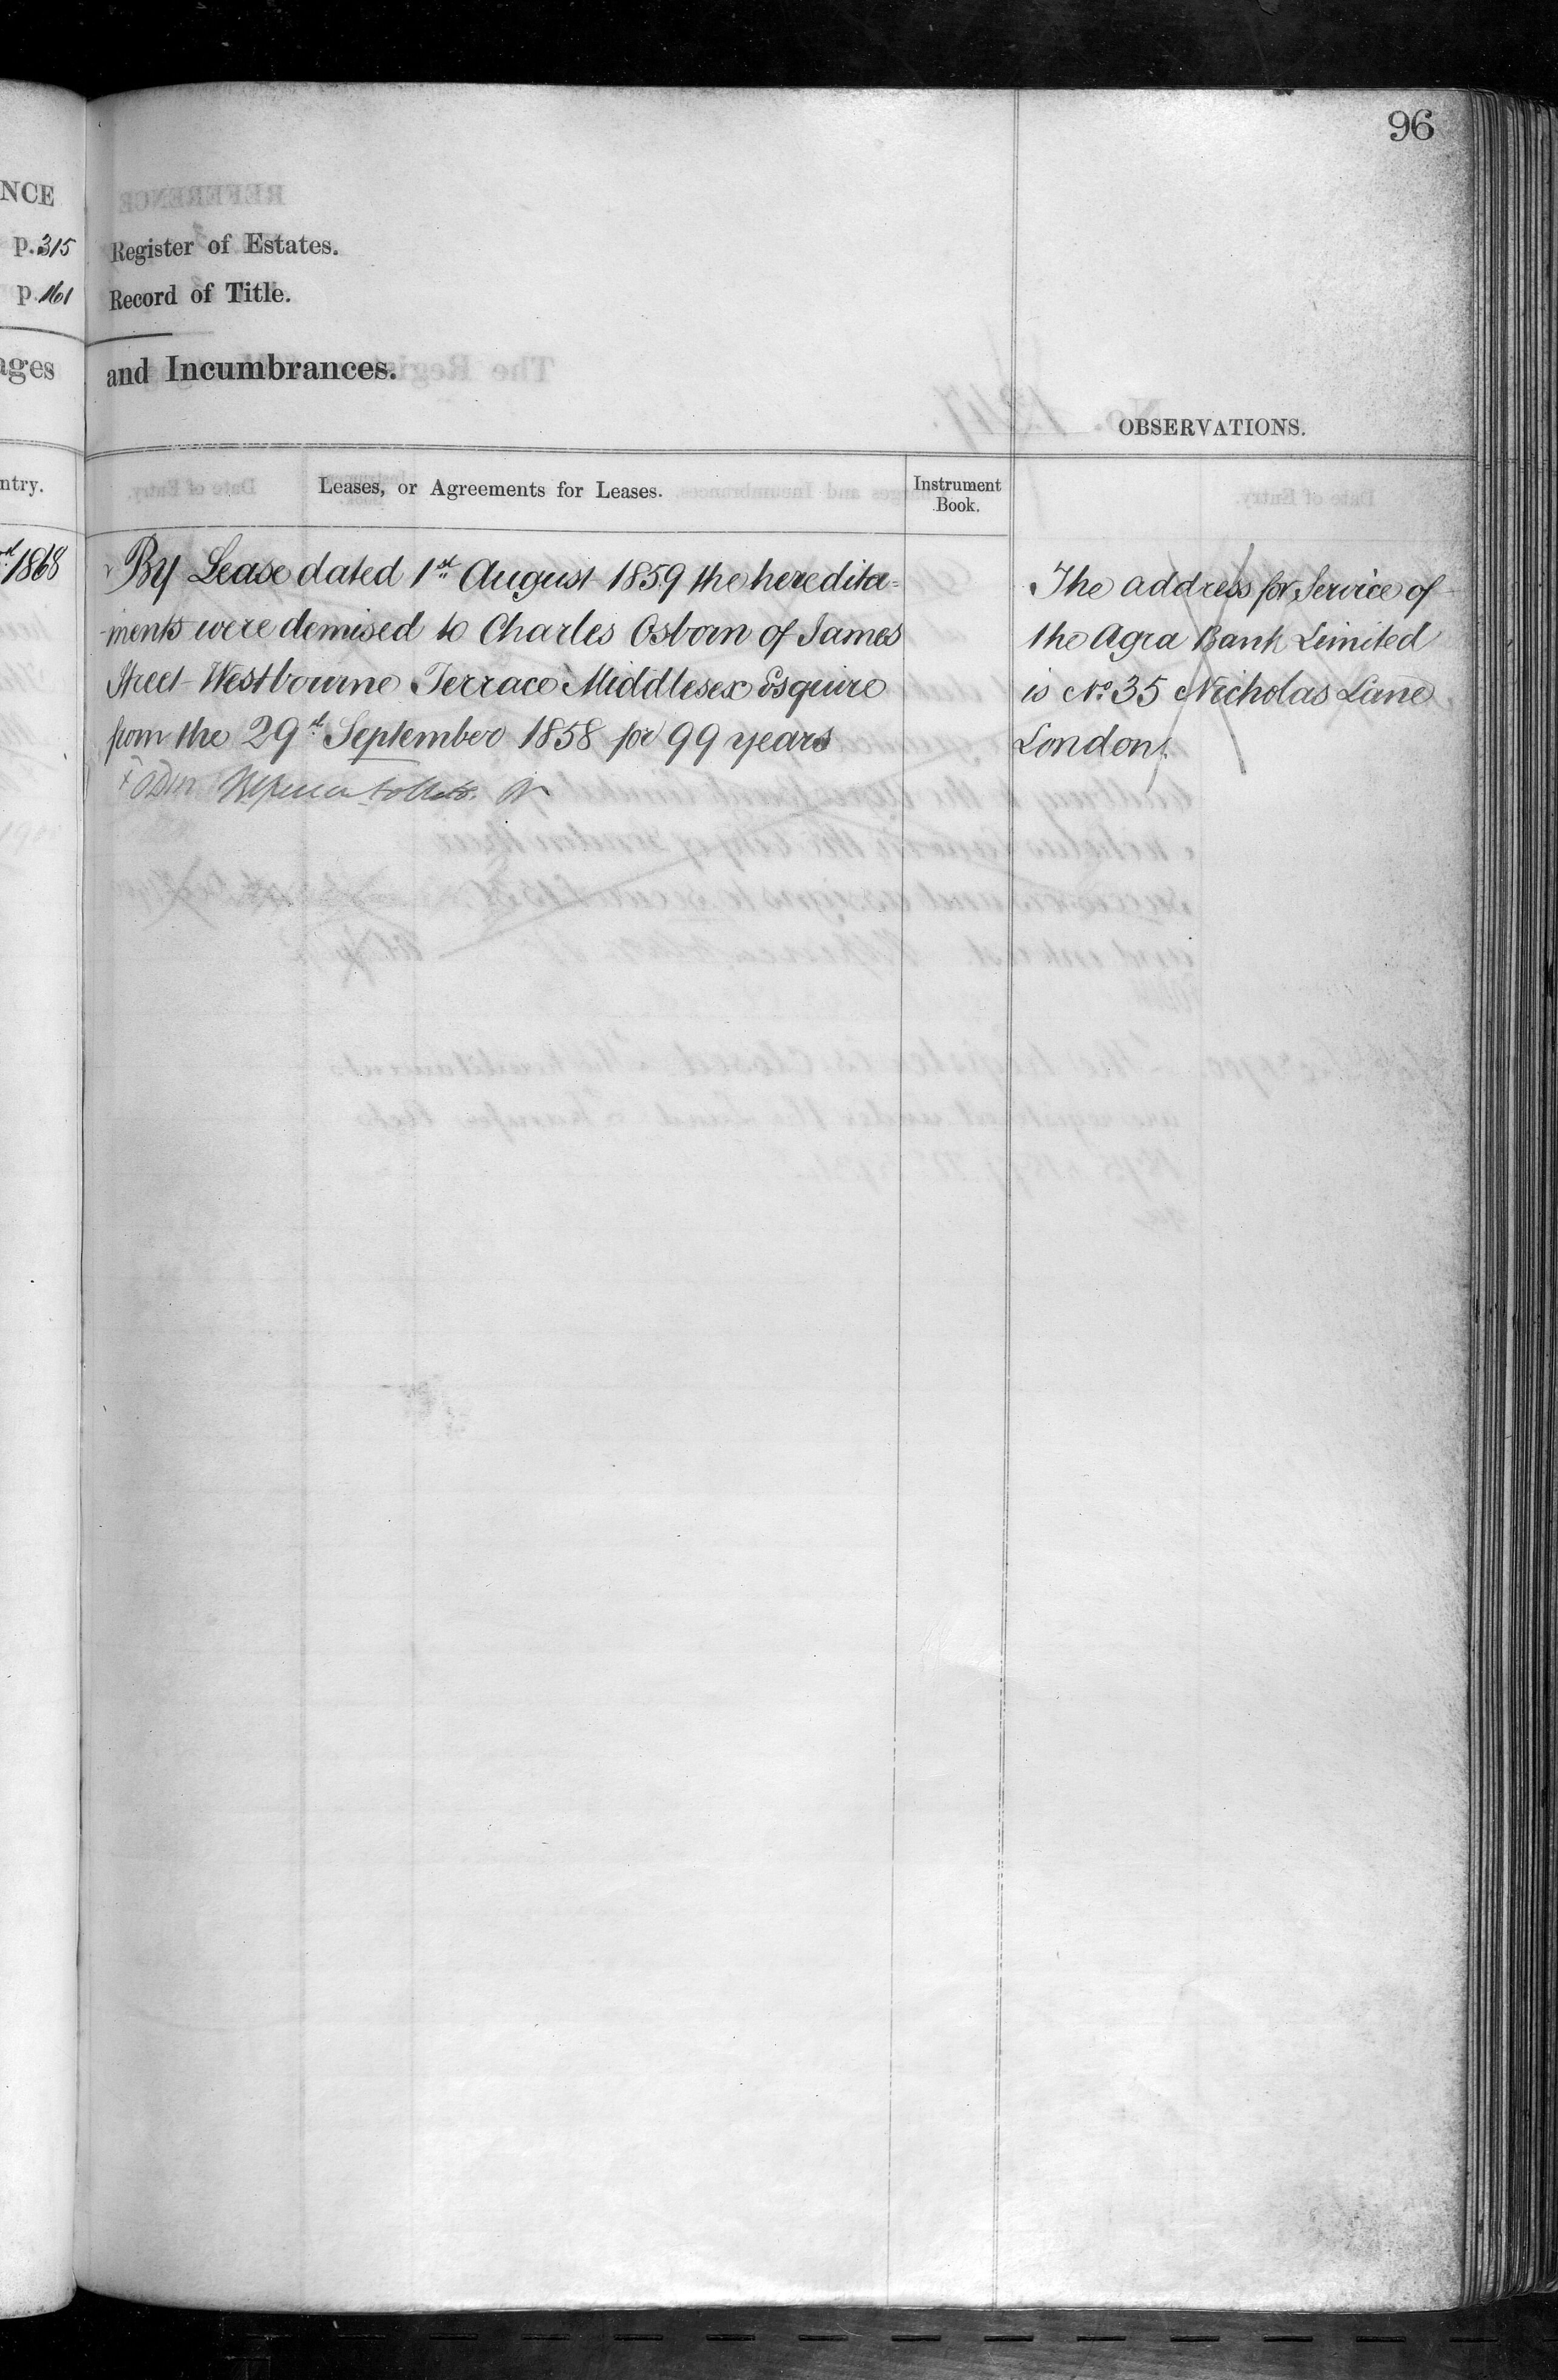 96
NCE
p. 315
Register of Estates.
p. 161
Record of Title.
ages
and Incumbrances.
OBSERVATIONS.
ntry.
Leases, or Agreements for Leases.
Instrument
Book.
1868
By Lease dated 1st August 1859 the heredita=
-ments were demised to Charles Osborn of James
Street Westbourne Terrace Middlesex Esquire
from the 29th September 1858 for 99 years
The address for Service of
the Agra Bank Limited
is No. 35 Nicholas Lane
London.